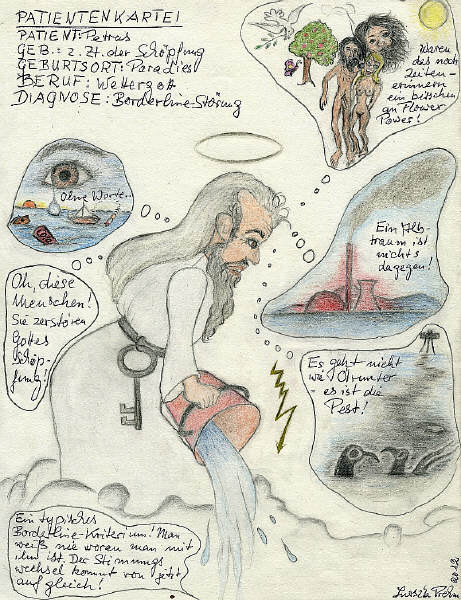 PATIENTENKARTEI
PATIENT: Petrus
GEB.: 2. Zt. der Schöpfung
GEBURTSORT: Paradies
BERUF: Wettergott
DIAGNOSE: Borderline-Störung
Waren
das noch
Zeiten -
erinnern
ein bißchen
an Flower
Power!
Ohne Worte..
Ein Alb-
traum ist
nichts
dagegen!
Oh, diese
Menschen!
Sie zerstören
Gottes
Schöp-
fung!
Es geht nicht
- es ist die
Pest!
Ein typisches
Borderline-Kriterium! Man
weiß nie woran man mit
ihm ist. Der Stimmungs
wechsel kommt von jetzt
auf gleich!
2012